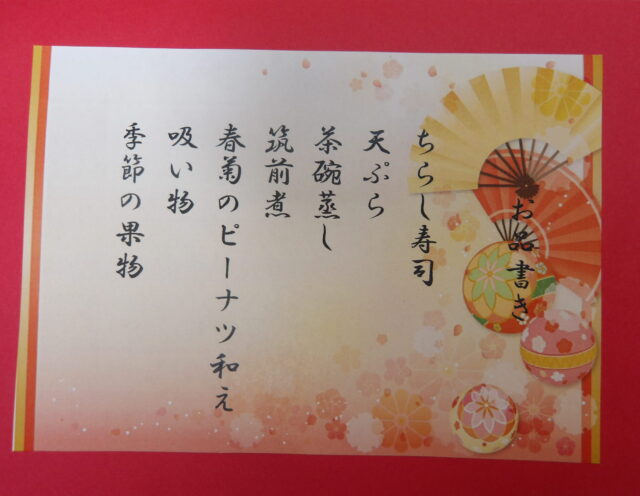 お品書き
ちらし寿司
天ぷら
茶碗蒸し
筑前煮
春菊のピーナツ和え
吸い物
季節の果物